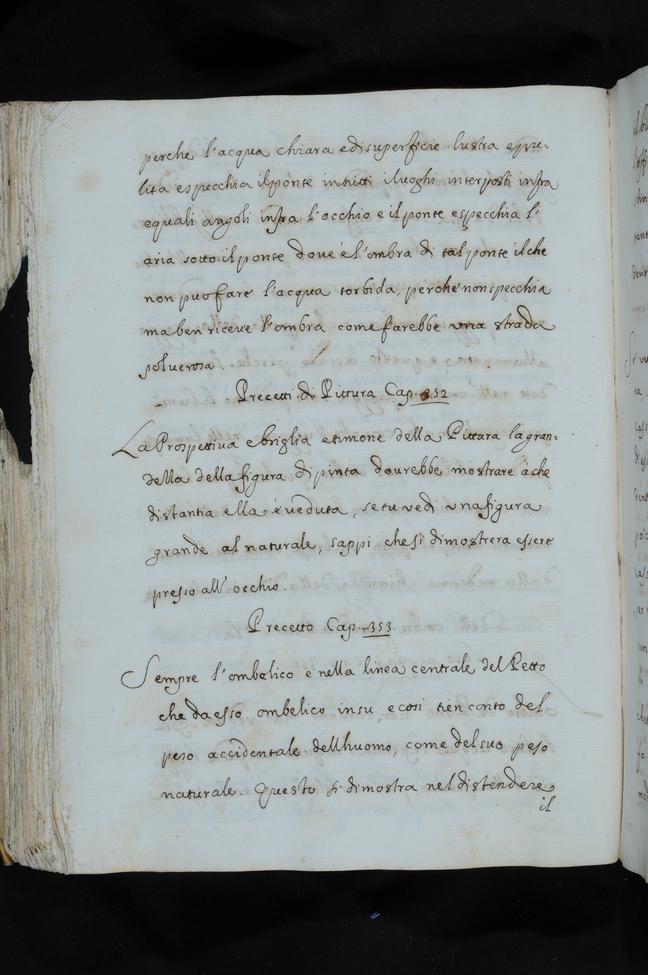 perche l'acqua chiara e di superficie lustra e pu-
lita e specchia il ponte in tutti i luoghi interposti infra
equali angoli infra l'occhio e il ponte e specchia l'
aria sotto il ponte dove è l'ombra di tal ponte il che
non puo fare l'acqua torbida, perche non specchia
ma ben riceve l'ombra come farebbe una strada
polverosa
Precetti di Pittura Cap. 352
La Prospettiva e briglia e timone della Pittura la gran-
della della figura dipinta dourebbe mostrare à che
distantia ella è veduta, se tu vedi una figura
grande al naturale, sappi che si dimostrera essere
presso all'occhio.
Precetto Cap. 353.
Sempre l'ombelico e nella linea centrale del Petto
che da esso ombelico in su e cosi tien conto del
peso accidentale dell'huomo, come del suo peso
naturale. Questo si dimostra nel distendere
il